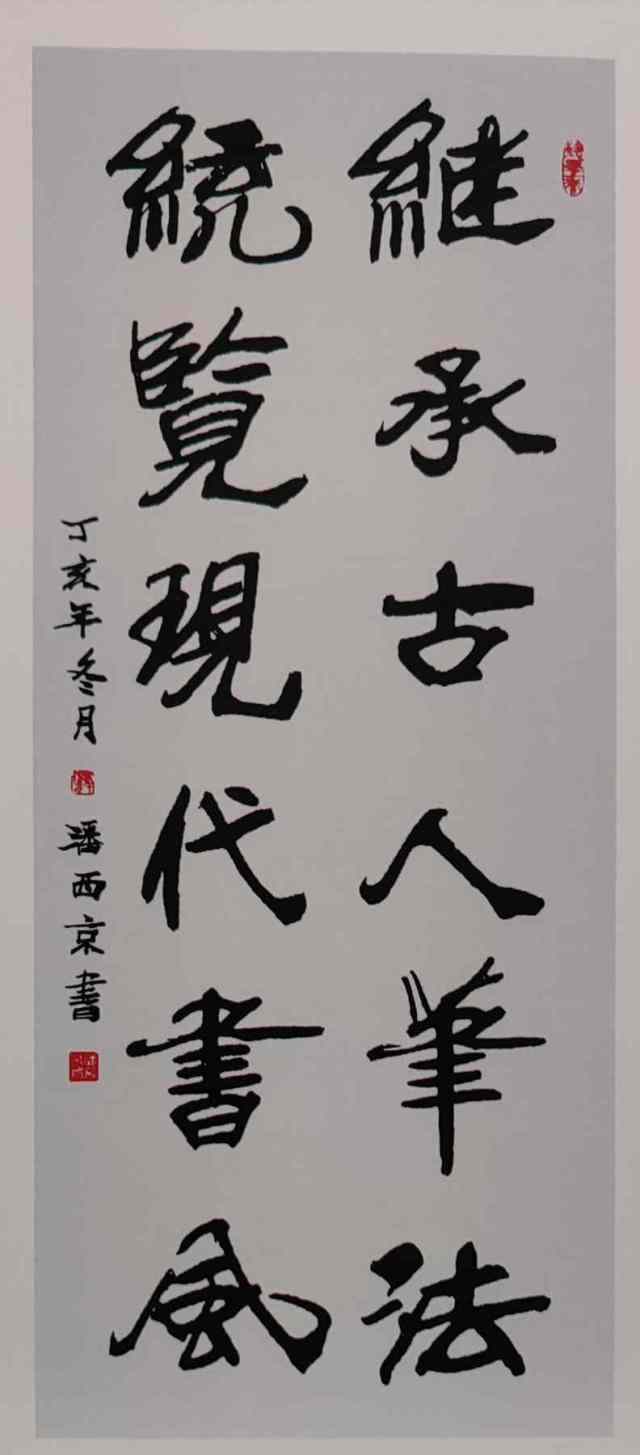 继承古人筆法
統覽現代書風
丁亥年冬月
潘西京書